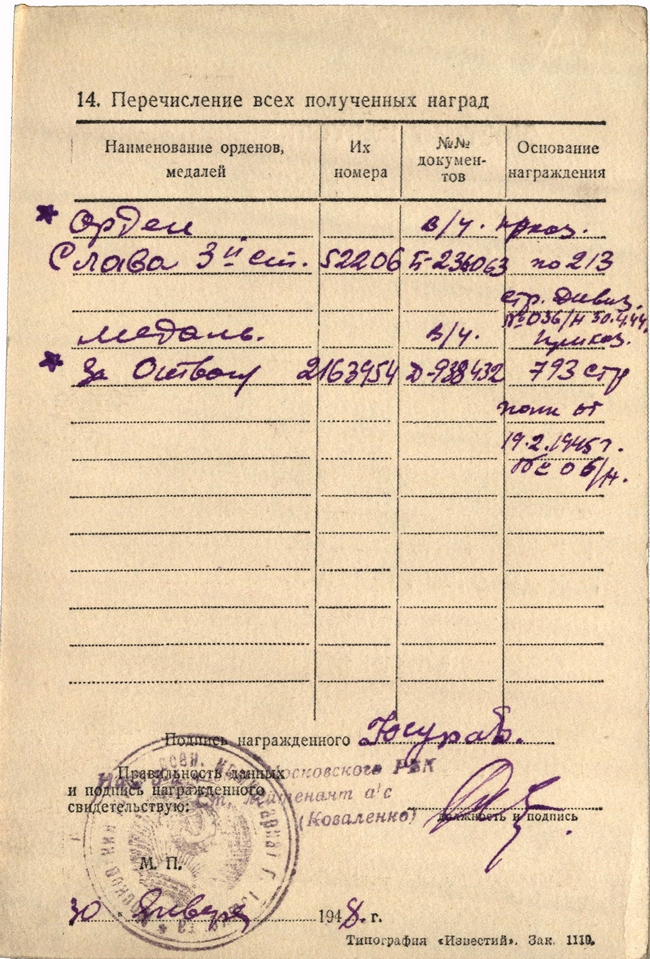 14. Перечисление всех полученных наград
Наименование орденов, медалей
Их номера
№№ документов
Основание награждения
Орден в/ч. приказ.
Слава 3й ст. 52206 Г-236063 по 213
стр. дивиз.
№036/н 30.4.44
медаль. в/ч. приказ.
За Отвагу 2163954 Д-938432 793 стр
полк от
19.2.1945 г.
№ 06/н.
Подпись награжденного
Правильность данных
и подпись награжденного
свидетельствую:
московского РВК
Ст. Лейтенант а/с
(Коваленко)
должность и подпись
М. П.
30 Января 1948. г.
Типография «Известий». Зак. 1110.